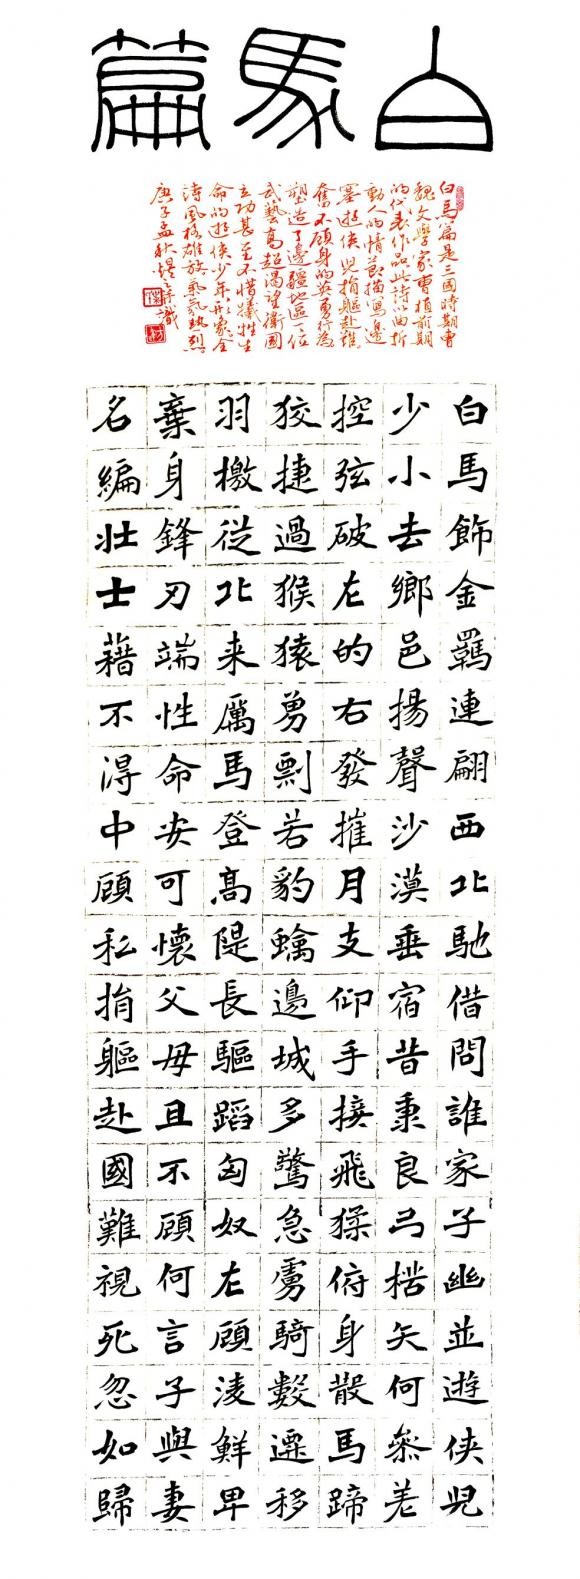 白馬篇
白馬篇是三國時期曹
魏文學家曹植前期
的代表作品此詩以曲折
動人的情節描寫邊
塞遊俠兒捐軀赴難
奮不顧身的英勇行為
塑造了邊疆地區一位
武藝高超渴望衛國
立功甚至不惜犧牲生
命的遊俠少年形象全
詩風格雄放氣氛熱烈
庚子孟秋煜識
白馬飾金羈連翩西北馳借問誰家子幽並遊俠兒
少小去鄉邑揚聲沙漠垂宿昔秉良弓楛矢何參差
控弦破左的右發摧月支仰手接飛猱俯身散馬蹄
狡捷過猴猿勇剽若豹螭邊城多驚急虜騎數遷移
羽檄從北来厲馬登高隄長驅蹈匈奴左顧淩鮮卑
棄身鋒刃端性命安可懷父母且不顧何言子與妻
名編壯士藉不得中顧私捐軀赴國難視死忽如歸